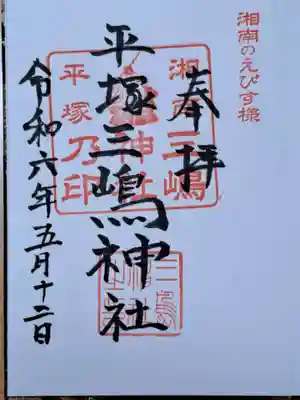 湘南のえびす様
奉拝
湘南三嶋
神社
平塚乃印
平塚三嶋神社
令和六年五月十二日